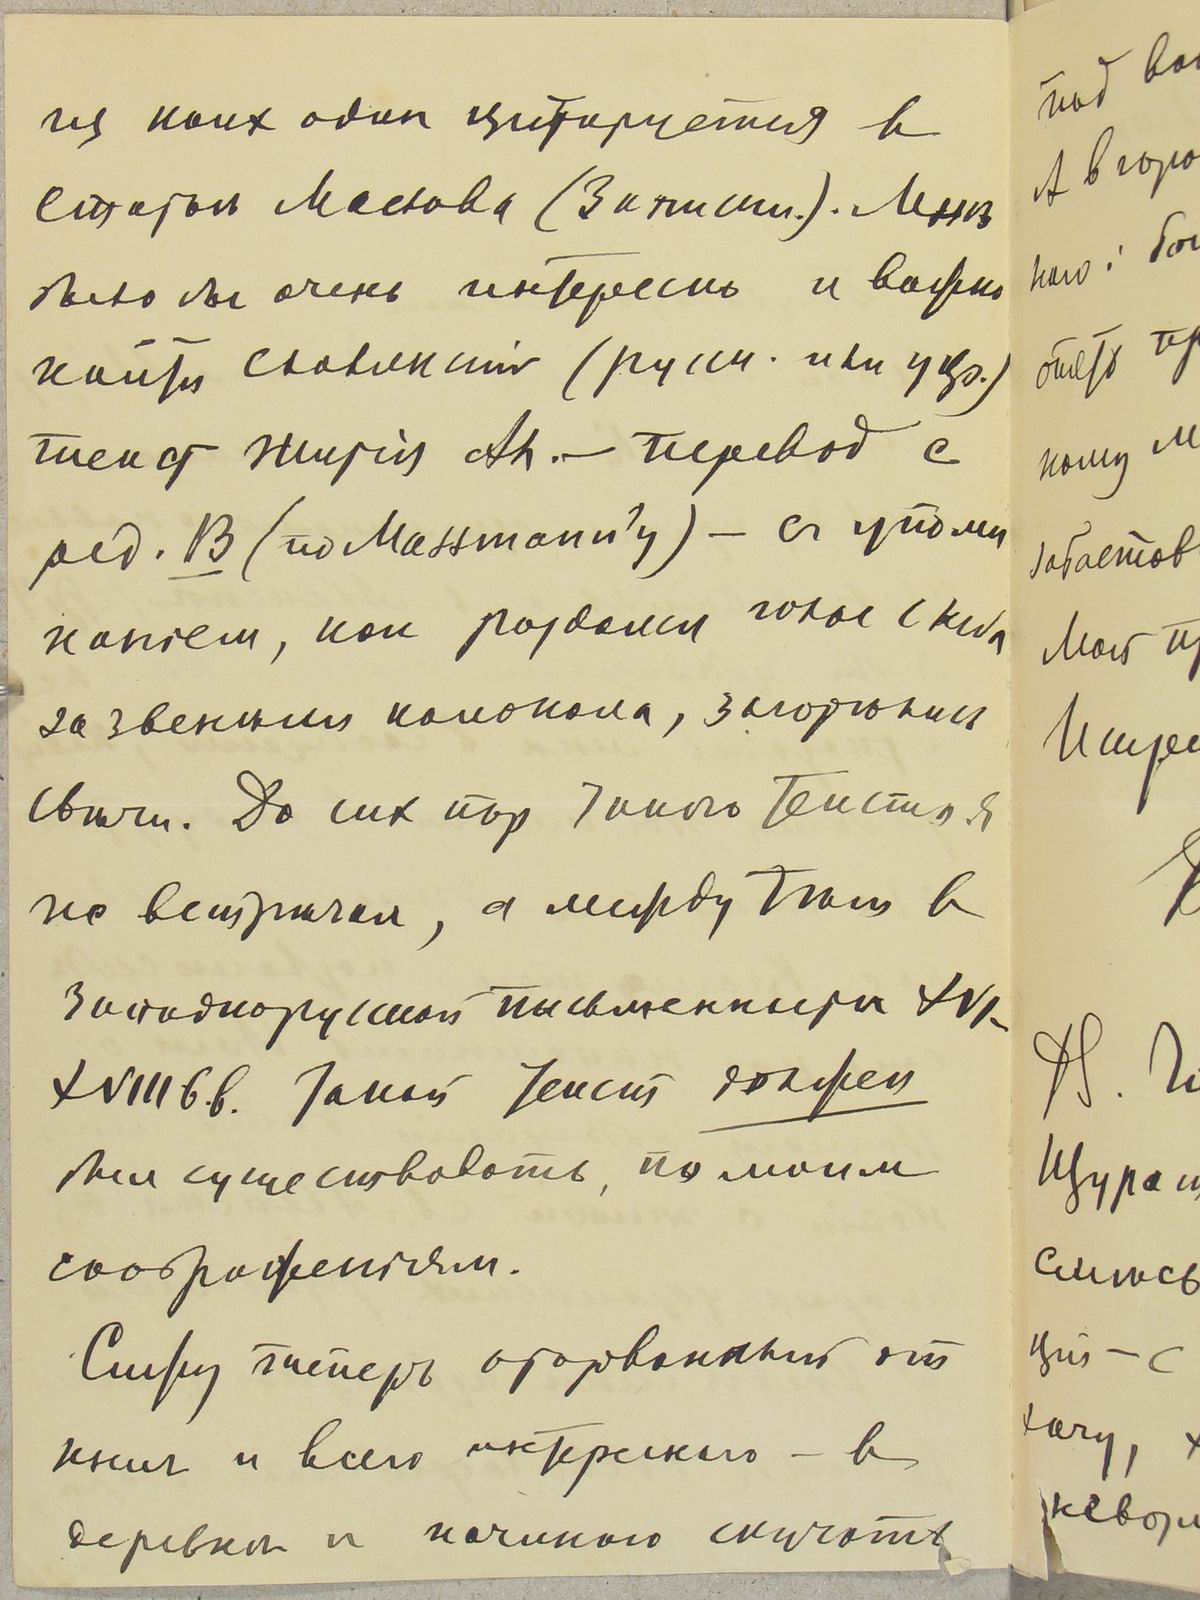 из коих один цитируется в
статьи Маслова (Записки.). Мнѣ
было бы очень интересно и важно
найти славянскій (русск. или укр.)
текст житія Ал. — перевод с
ред. В (по Massmann'у) — с упоми
наніем, как раздался голос с неба
зазвенѣли колокола, загорѣлись
свѣчи. До сих пор такого текста я
не встрѣчал, а между тѣм в
западнорусской письменности XVI–
XVIII в.в. такой текст должен
был существовать, по моим
соображеніям.
Сижу теперь оторванный от
книг и всего интереснаго — в
деревнѣ и начинаю скучать
под
А в горо
наго:
опять пр
кому м
Моя пр
Д.
Щура
хочу, х